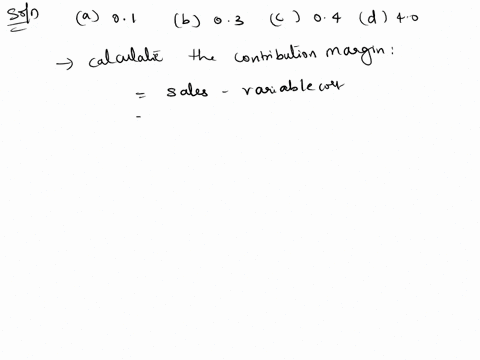 Soln (a) 0.1 (b) 0.3 (c) 0.4 (d) 4.0
→ calculate the contribution margin:
= sales - variable cost
=